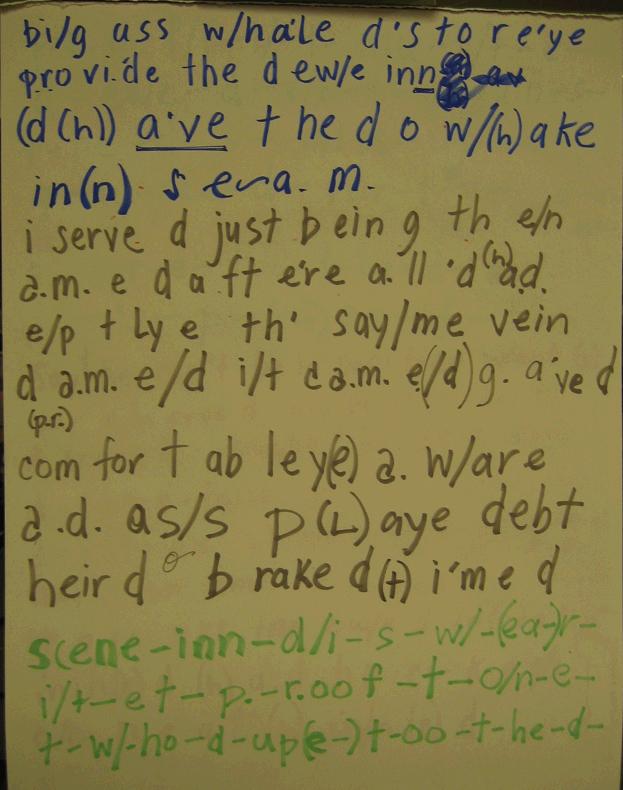 bi/g ass w/hale d's to re'ye
provide the dew/e inn
(d(h)) a've the do w/(h)ake
in(n) s era. m.
i serve d just being th e/n
a.m. e d a ft e're a. ll 'd(h)ad.
e/p t Ly e th' say/me vein
d a.m. e/d i/t c a.m. e(/d) g. a've d
(p.r.)
com for t ab le y(e) a. w/are
a.d. as/s p(L)aye debt
heir d o b rake d(t) i'me d
scene-inn-d/i-s-w/-(ea-)r-
i/t-et-p.-r.oof-t-o/n-e-
t-w/-ho-d-up(e-)t-oo-t-he-d-